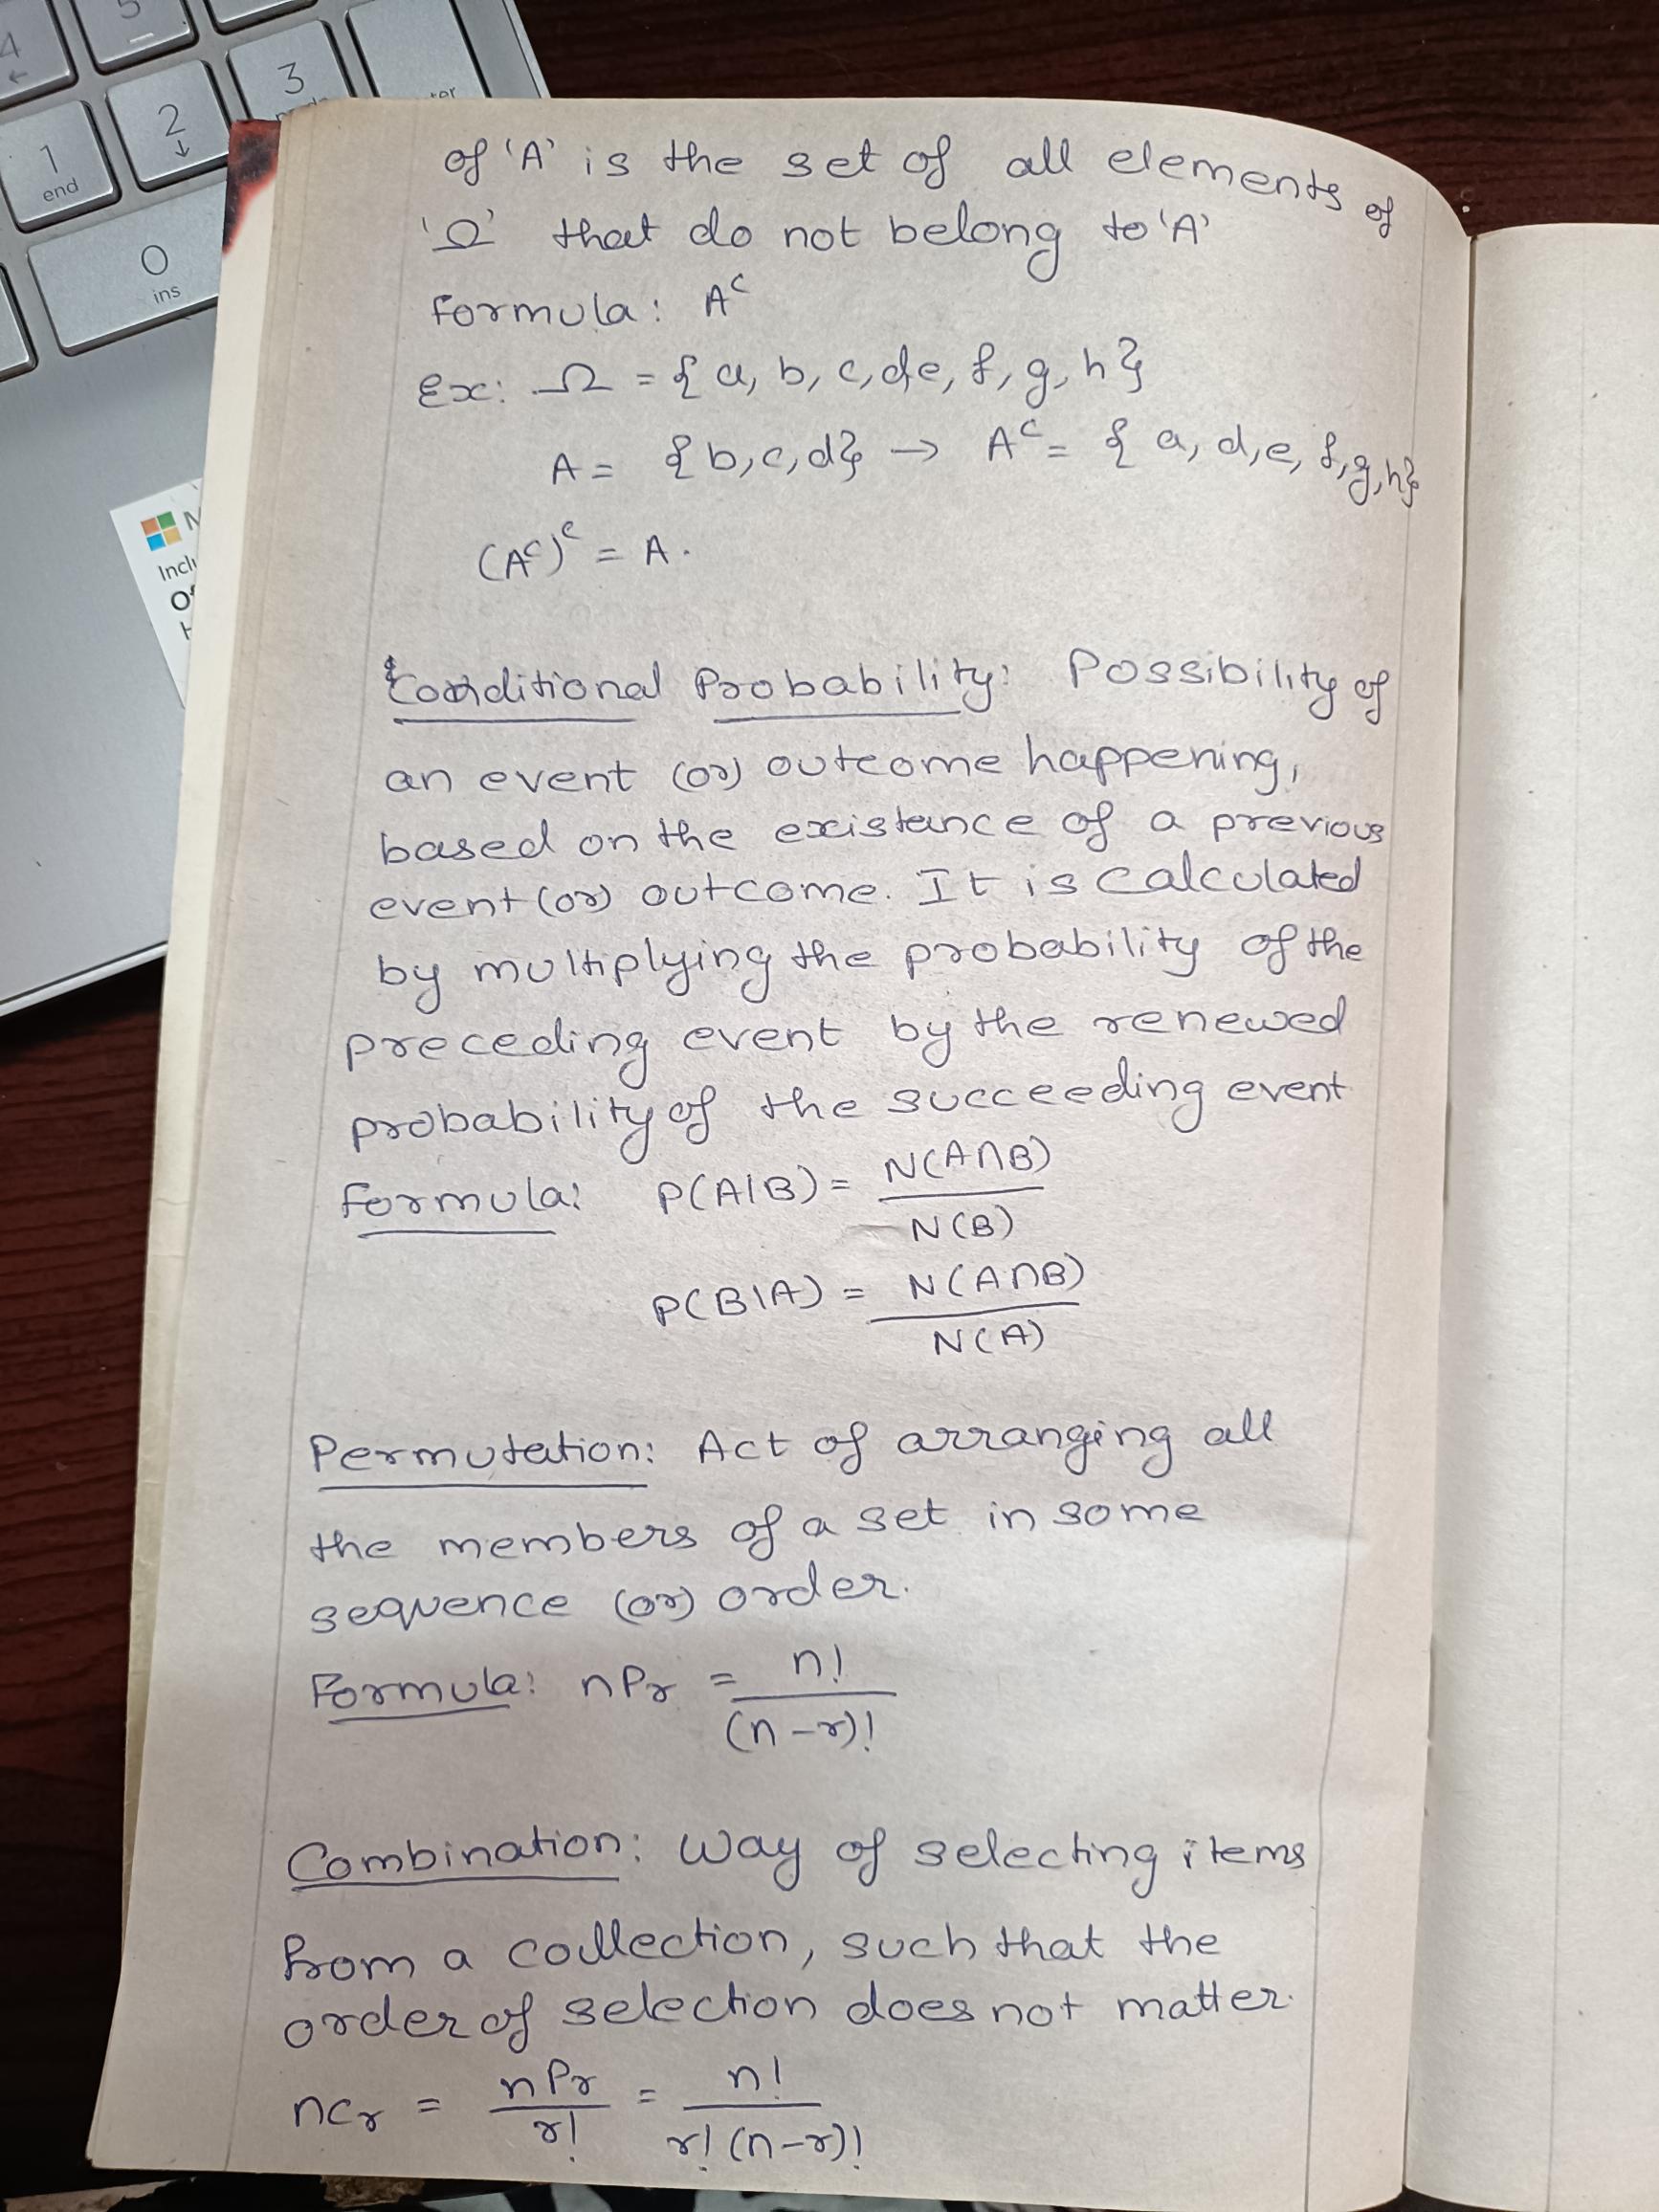 4
←
5
3
ter
1
end
2
↓
0
ins
M
Inclu
Of
H
of 'A' is the set of all elements of
'Ω' that do not belong to 'A'
Formula: Aᶜ
Ex: Ω = {a, b, c, d, e, f, g, h}
A = {b, c, d} → Aᶜ = {a, d, e, f, g, h}
(Aᶜ)ᶜ = A.
Conditional Probability: Possibility of
an event (or) outcome happening,
based on the existance of a previous
event (or) outcome. It is calculated
by multiplying the probability of the
preceding event by the renewed
probability of the succeeding event
Formula: P(A|B) = N(A∩B) / N(B)
P(B|A) = N(A∩B) / N(A)
Permutation: Act of arranging all
the members of a set in some
sequence (or) order.
Formula: nPr = n! / (n-r)!
Combination: Way of selecting items
from a collection, such that the
order of selection does not matter.
ncr = nPr / r! = n! / r! (n-r)!